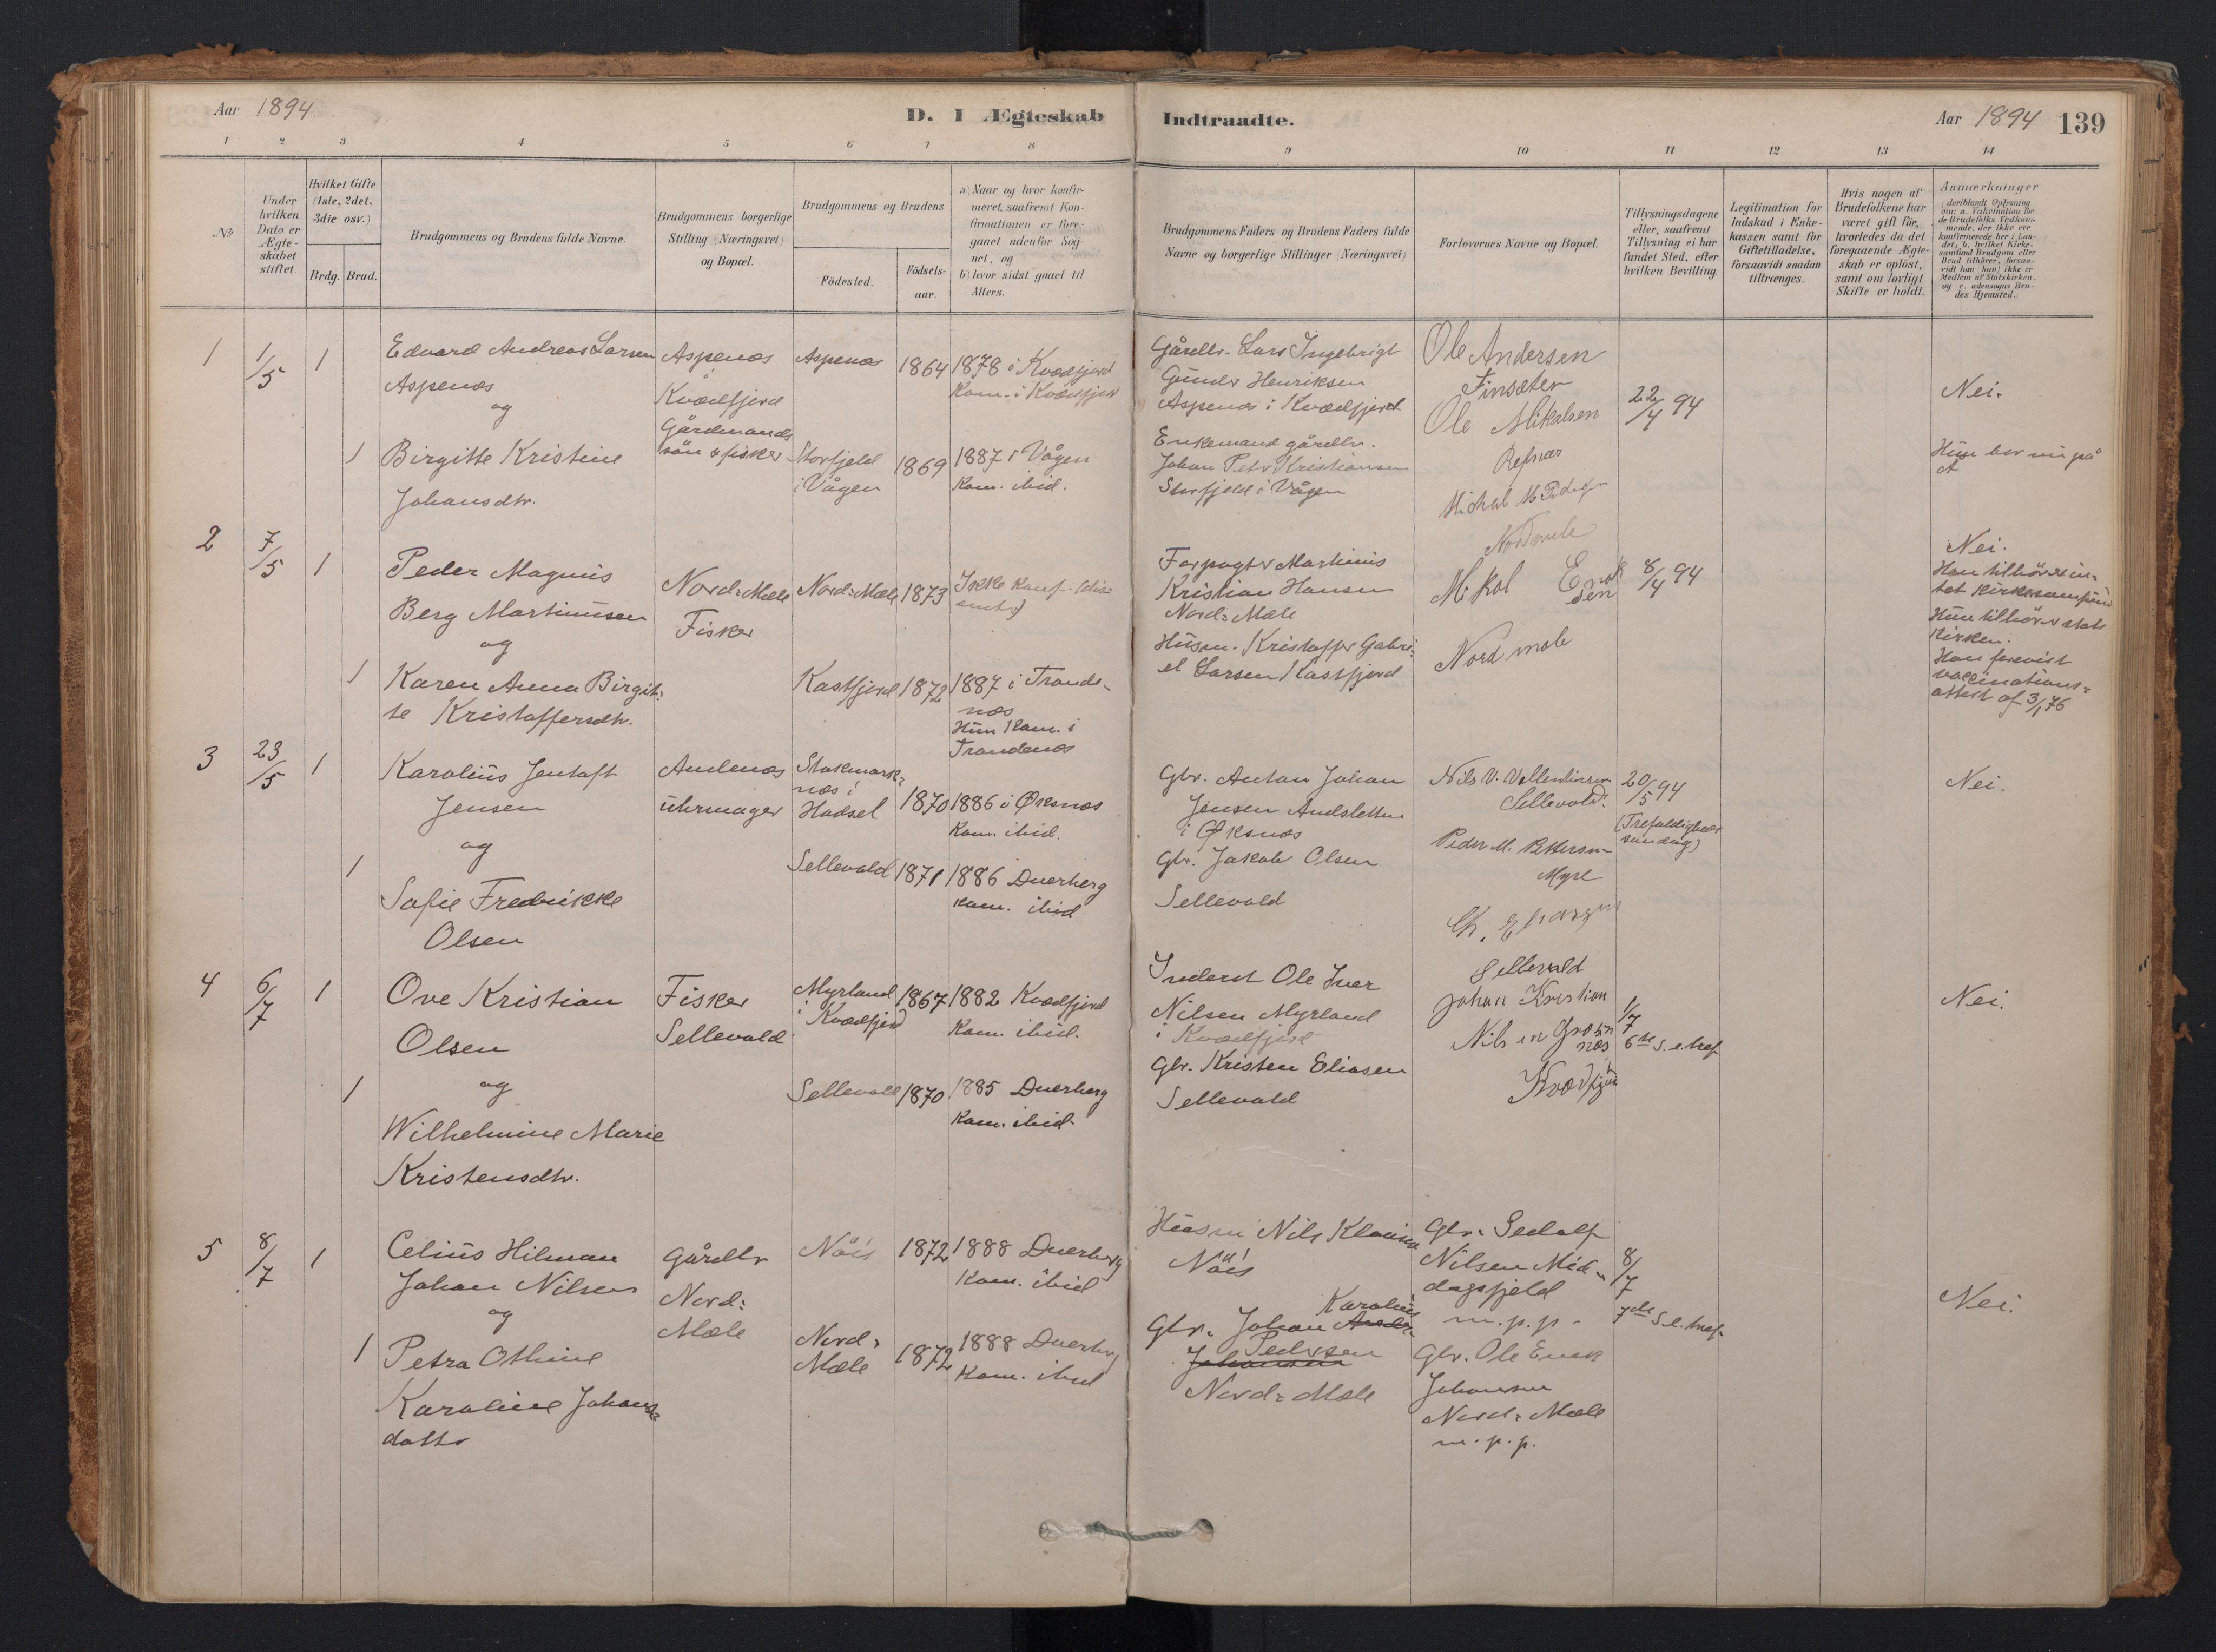 Aar 1894
D. I Ægteskab
Indtraadte.
Aar 1894 139
1 2 3 4 5 6 7 8
9 10 11 12 13 14
No
Under hvilken Dato er Ægteskabet stiftet
Hvilket Gifte (1ste, 2det, 3die osv.)
Brdg. Brud.
Brudgommens og Brudens fulde Navne.
Brudgommens borgerlige Stilling (Næringsvei) og Bopæl.
Brudgommens og Brudens
Födested.
Födselsaar.
a) Naar og hvor konfirmeret, saafremt Konfirmationen er foregaaet udenfor Sognet, og
b) hvor sidst gaaet til Alters.
Brudgommens Faders og Brudens Faders fulde Navne og borgerlige Stillinger (Næringsvei)
Forlovernes Navne og Bopæl.
Tillysningsdagene eller, saafremt Tillysning ei har fundet Sted, efter hvilken Bevilling.
Legitimation for Indskud i Enkekassen samt for Giftetilladelse, forsaavidt saadan tiltrænges.
Hvis nogen af Brudefolkene har været gift för, hvorledes da det foregaaende Ægteskab er oplöst, samt om lovligt Skifte er holdt.
Anmærkninger (deriblandt Oplysning om: a. Vakcination for de Brudefolks Vedkommende, der ikke ere konfirmerede her i Landet; b. hvilket Kirkesamfund Brudgom eller Brud tilhörer, forsaavidt han (hun) ikke er Medlem af Statskirken, og c. udensogns Brudes Hjemsted.)
1 1/5 1
Edvard Andreas Larsen
Aspenæs
og
1 Birgitte Kristine
Johansdtr.
Aspenæs
i
Kvædfjord
Gårdmands
sön & fisker
Aspenæs 1864
1878 i Kvædfjord
Kom. i Kvædfjord
Storfjeld
i Vågen
1869
1887 i Vågen
Kom. ibid.
Gårdbr. Lars Ingebrigt
Gunder Henriksen
Aspenæs i Kvædfjord
Enkemand gårdbr.
Johan Petr. Kristiansen
Storfjeld i Vågen
Ole Andersen
Finsæter
Ole Mikalsen
Refnæs
22/4 94
Nei.
Hun bor nu på
2 7/5 1
Peder Magnus
Berg Martinusen
og
1 Karen Anna Birgit-
te Kristoffersdtr.
Nord-Mæle
Fisker
Nord-Mæle 1873
Ikke konf.
Kastfjord 1872
1887 i Tronde-
næs
Hun Kom. i
Trondenæs
Forpagtr Martinus
Kristian Hansen
Nord-Mæle
Husm. Kristoffer Gabri-
el Larsen Kastfjord
Nordmele
Mikal Enok
sen
Nord mele
8/4 94
Nei.
Han tilhörer in-
tet kirkesamfund
Hun tilhörer stats
kirken.
Han forevist
vaccinations-
attest af 3/1 76
3 23/5 1
Karolius Jentoft
Jensen
og
1 Sofie Fredrikke
Olsen
Andenæs
uhrmager
Stokmark-
næs i
Hadsel
1870
1886 i Øksnæs
Kom. ibid.
Sellevold 1871
1886 Dverberg
Kom. ibid
Gbr. Antan Johan
Jensen Andsletten
i Øksnæs
Gbr. Jakob Olsen
Sellevold
Nils V. Vallentinsen
Sellevold.
Peder M. Pettersen
Myre
20/5 94
(Trefoldigheds
söndag)
Nei.
4 6/7 1
Ove Kristian
Olsen
og
1 Wilhelmine Marie
Kristensdtr.
Fisker
Sellevold
Myrland
i Kvædfjord
1867
1882 Kvædfjord
Kom. ibid.
Sellevold 1870
1885 Dverberg
Kom. ibid
Inderst Ole Iver
Nilsen Myrland
i Kvædfjord
Gbr. Kristen Eliasen
Sellevold
Sellevold
Johan Kristian
Nilsen
Kvædfjord
1/7
6te S. e. tref
Nei.
5 8/7 1
Celius Hilman
Johan Nilsen
og
1 Petra Othine
Karoline Johans-
datter
Gårdbr
Nord-
Mæle
Nöis 1872
1888 Dverberg
Kom. ibid
Nord-
Mæle
1872
1888 Dverberg
Kom. ibid
Husm Nils Klausen
Nöis
Karolius
Gbr. Johan Andr.
Pedersen
Johansen
Nord-Mæle
Gbr. Sedolf
Nilsen Mid-
dagsfjeld
m.p.p.
Gbr. Ole Enok
Johansen
Nord-Mæle
m.p.p.
8/7
7de S. e. tref.
Nei.